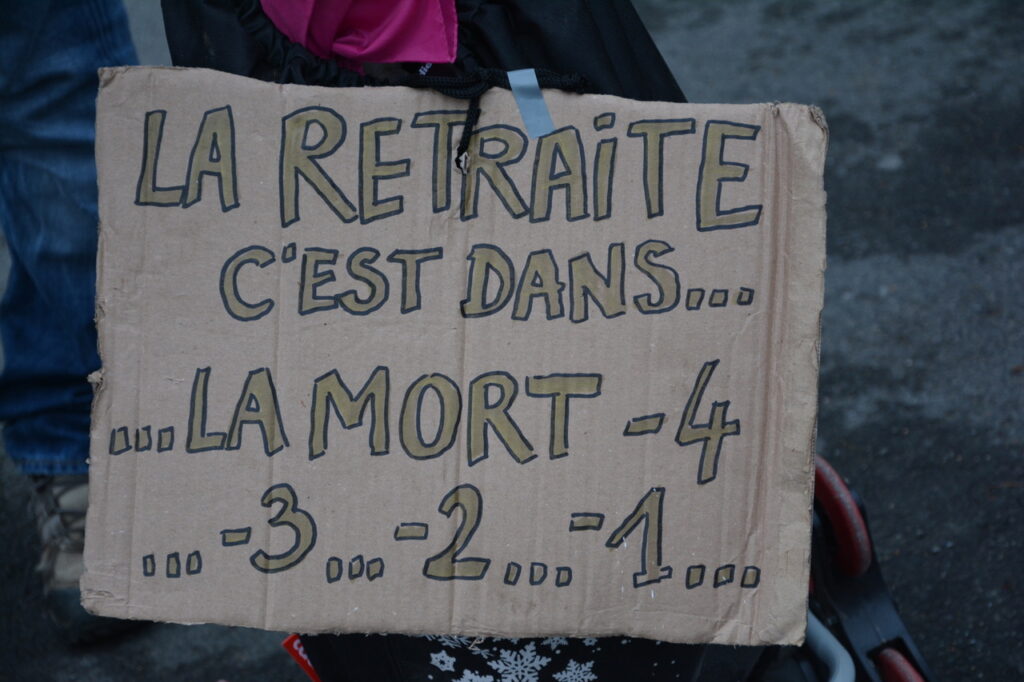 LA RETRAiTE
C'EST DANS...
...LA MORT -4
... -3... -2... -1...